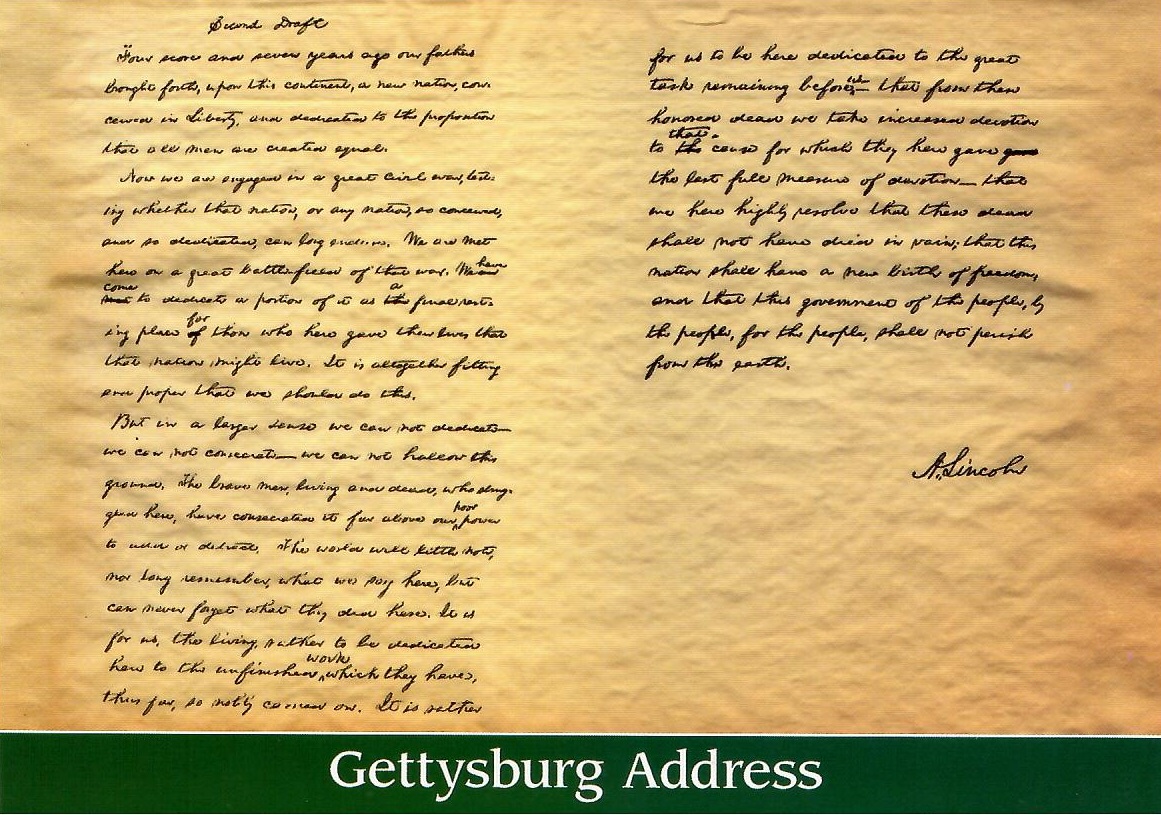 Second Draft
Four score and seven years ago our fathers
brought forth, upon this continent, a new nation, con-
ceived in Liberty, and dedicated to the proposition
that all men are created equal.
Now we are engaged in a great civil war, test-
ing whether that nation, or any nation, so conceived,
and so dedicated, can long endure. We are met
here on a great battle-field of that war. We are have
come
met to dedicate a portion of it as the a final rest-
for
ing place of those who here gave their lives that
that nation might live. It is altogether fitting
and proper that we should do this.
But in a larger sense we can not dedicate—
we can not consecrate— we can not hallow this
ground. The brave men, living and dead, who strug-
poor
gled here, have consecrated it far above our power
to add or detract. The world will little note,
nor long remember, what we say here, but
can never forget what they did here. It is
for us, the living, rather to be dedicated
work
here to the unfinished which they have,
thus far, so nobly carried on. It is rather
for us to be here dedicated to the great
task remaining before us— that from these
honored dead we take increased devotion
that
to the cause for which they here gave gave
the last full measure of devotion— that
we here highly resolve that these dead
shall not have died in vain; that this
nation shall have a new birth of freedom;
and that this government of the people, by
the people, for the people, shall not perish
from the earth.
A. Lincoln
Gettysburg Address